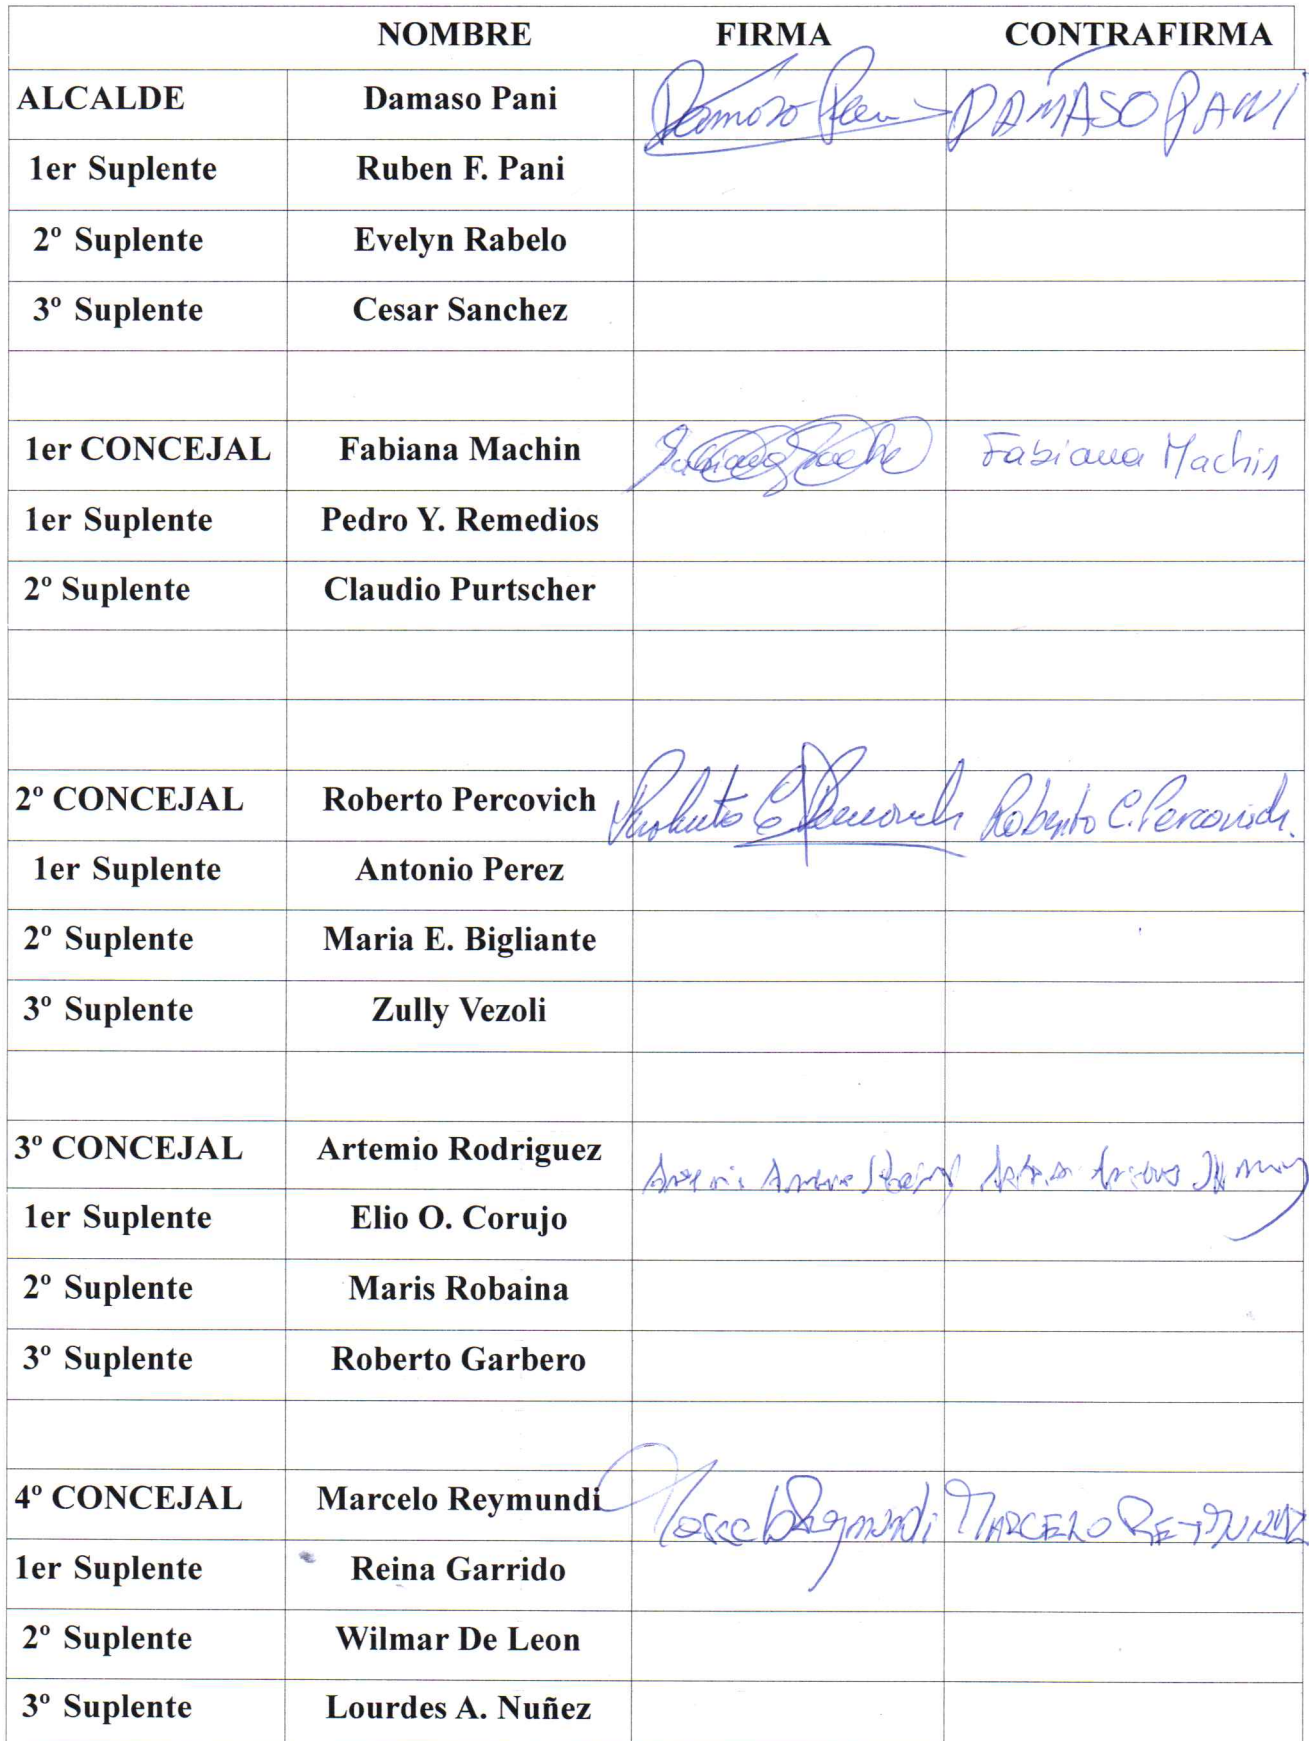 NOMBRE FIRMA CONTRAFIRMA
ALCALDE Damaso Pani Damaso Pani DAMASO PANI
1er Suplente Ruben F. Pani
2º Suplente Evelyn Rabelo
3º Suplente Cesar Sanchez
1er CONCEJAL Fabiana Machin Fabiana Machin
1er Suplente Pedro Y. Remedios
2º Suplente Claudio Purtscher
2º CONCEJAL Roberto Percovich Roberto C Percovich Roberto C. Percovich.
1er Suplente Antonio Perez
2º Suplente Maria E. Bigliante
3º Suplente Zully Vezoli
3º CONCEJAL Artemio Rodriguez
1er Suplente Elio O. Corujo
2º Suplente Maris Robaina
3º Suplente Roberto Garbero
4º CONCEJAL Marcelo Reymundi Marcelo Reymundi MARCELO REYMUNDI
1er Suplente Reina Garrido
2º Suplente Wilmar De Leon
3º Suplente Lourdes A. Nuñez